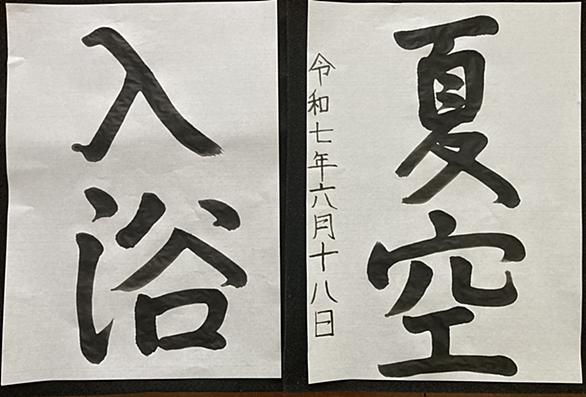 夏空
令和七年六月十八日
入浴